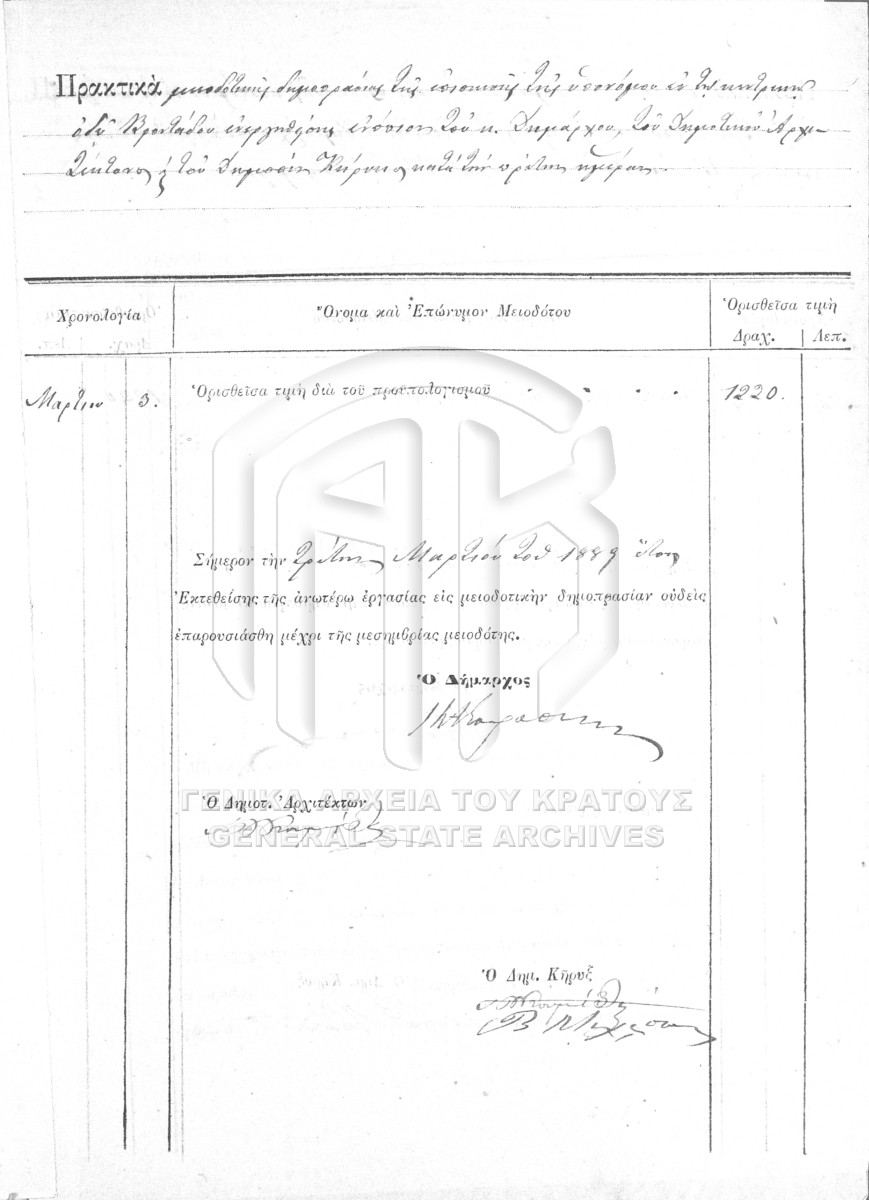 Πρακτικὰ μειοδοτικῆς δημοπρασίας τῆς ἐπισκευῆς τῆς ὑπονόμου ἐν τῇ κεντρικῇ
ὁδῷ ἐνεργηθείσης ἐνώπιον τοῦ κ. Δημάρχου, τοῦ Δημοτικοῦ Ἀρχι-
τέκτονος τοῦ Κήρυκος κατὰ τὴν πρώτην ἡμέραν
Χρονολογία
Ὄνομα καὶ Ἐπώνυμον Μειοδότου
Ὁρισθεῖσα τιμὴ
Δραχ. Λεπ.
Μαρτίου 3. Ὁρισθεῖσα τιμὴ διὰ τοῦ προϋπολογισμοῦ . . . . 1220.
Σήμερον τὴν τρίτην Μαρτίου τοῦ 1889 ἔτους
Ἐκτεθείσης τῆς ἀνωτέρω ἐργασίας εἰς μειοδοτικὴν δημοπρασίαν οὐδεὶς
ἐπαρουσιάσθη μέχρι τῆς μεσημβρίας μειοδότης.
Ὁ Δήμαρχος
ΓΕΝΙΚΑ ΑΡΧΕΙΑ ΤΟΥ ΚΡΑΤΟΥΣ
Ὁ Δημοτ. Ἀρχιτέκτων
GENERAL STATE ARCHIVES
Ὁ Δημ. Κῆρυξ